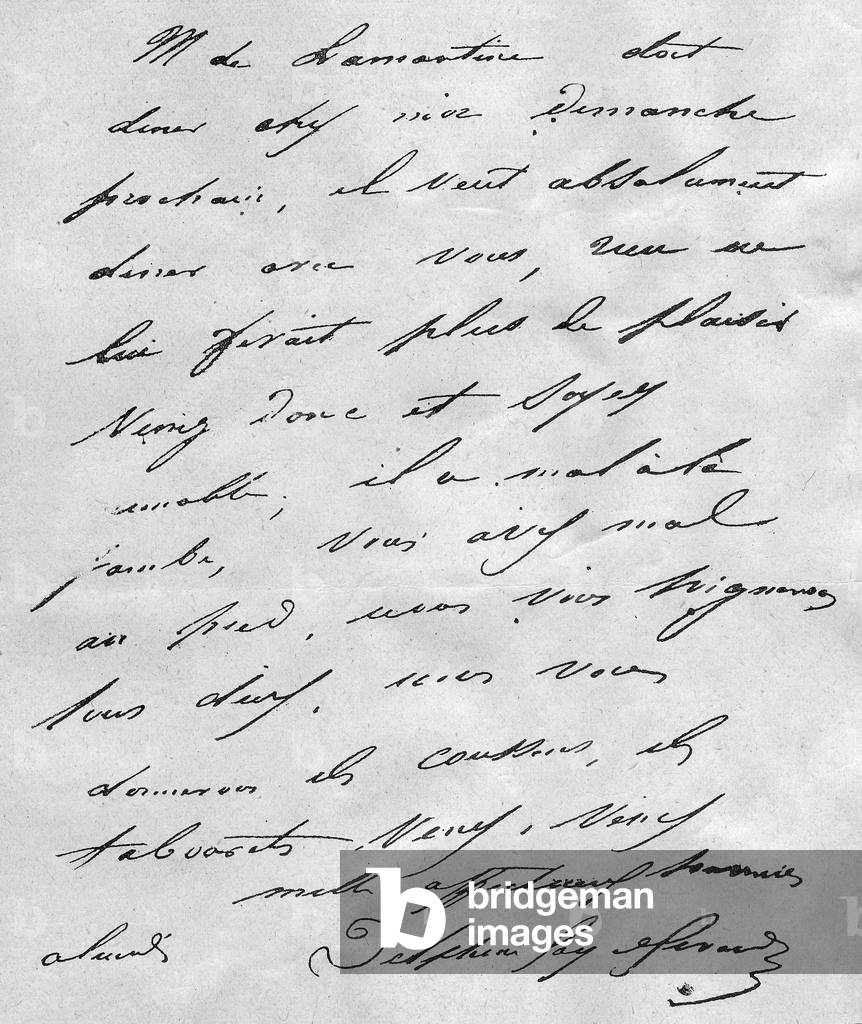 M de Lamartine doit
diner chez moi Dimanche
prochain, il veut absolument
diner avec vous, rien ne
lui ferait plus de plaisir
Venez donc et soyez
aimable, il a mal à la
jambe, vous avez mal
au pied, nous vous soignerons
tous deux, nous vous
donnerons des coussins, des
tabourets Venez, Venez
mille affectueux souvenirs
bridgeman
images
Delphine Gay de Girardin